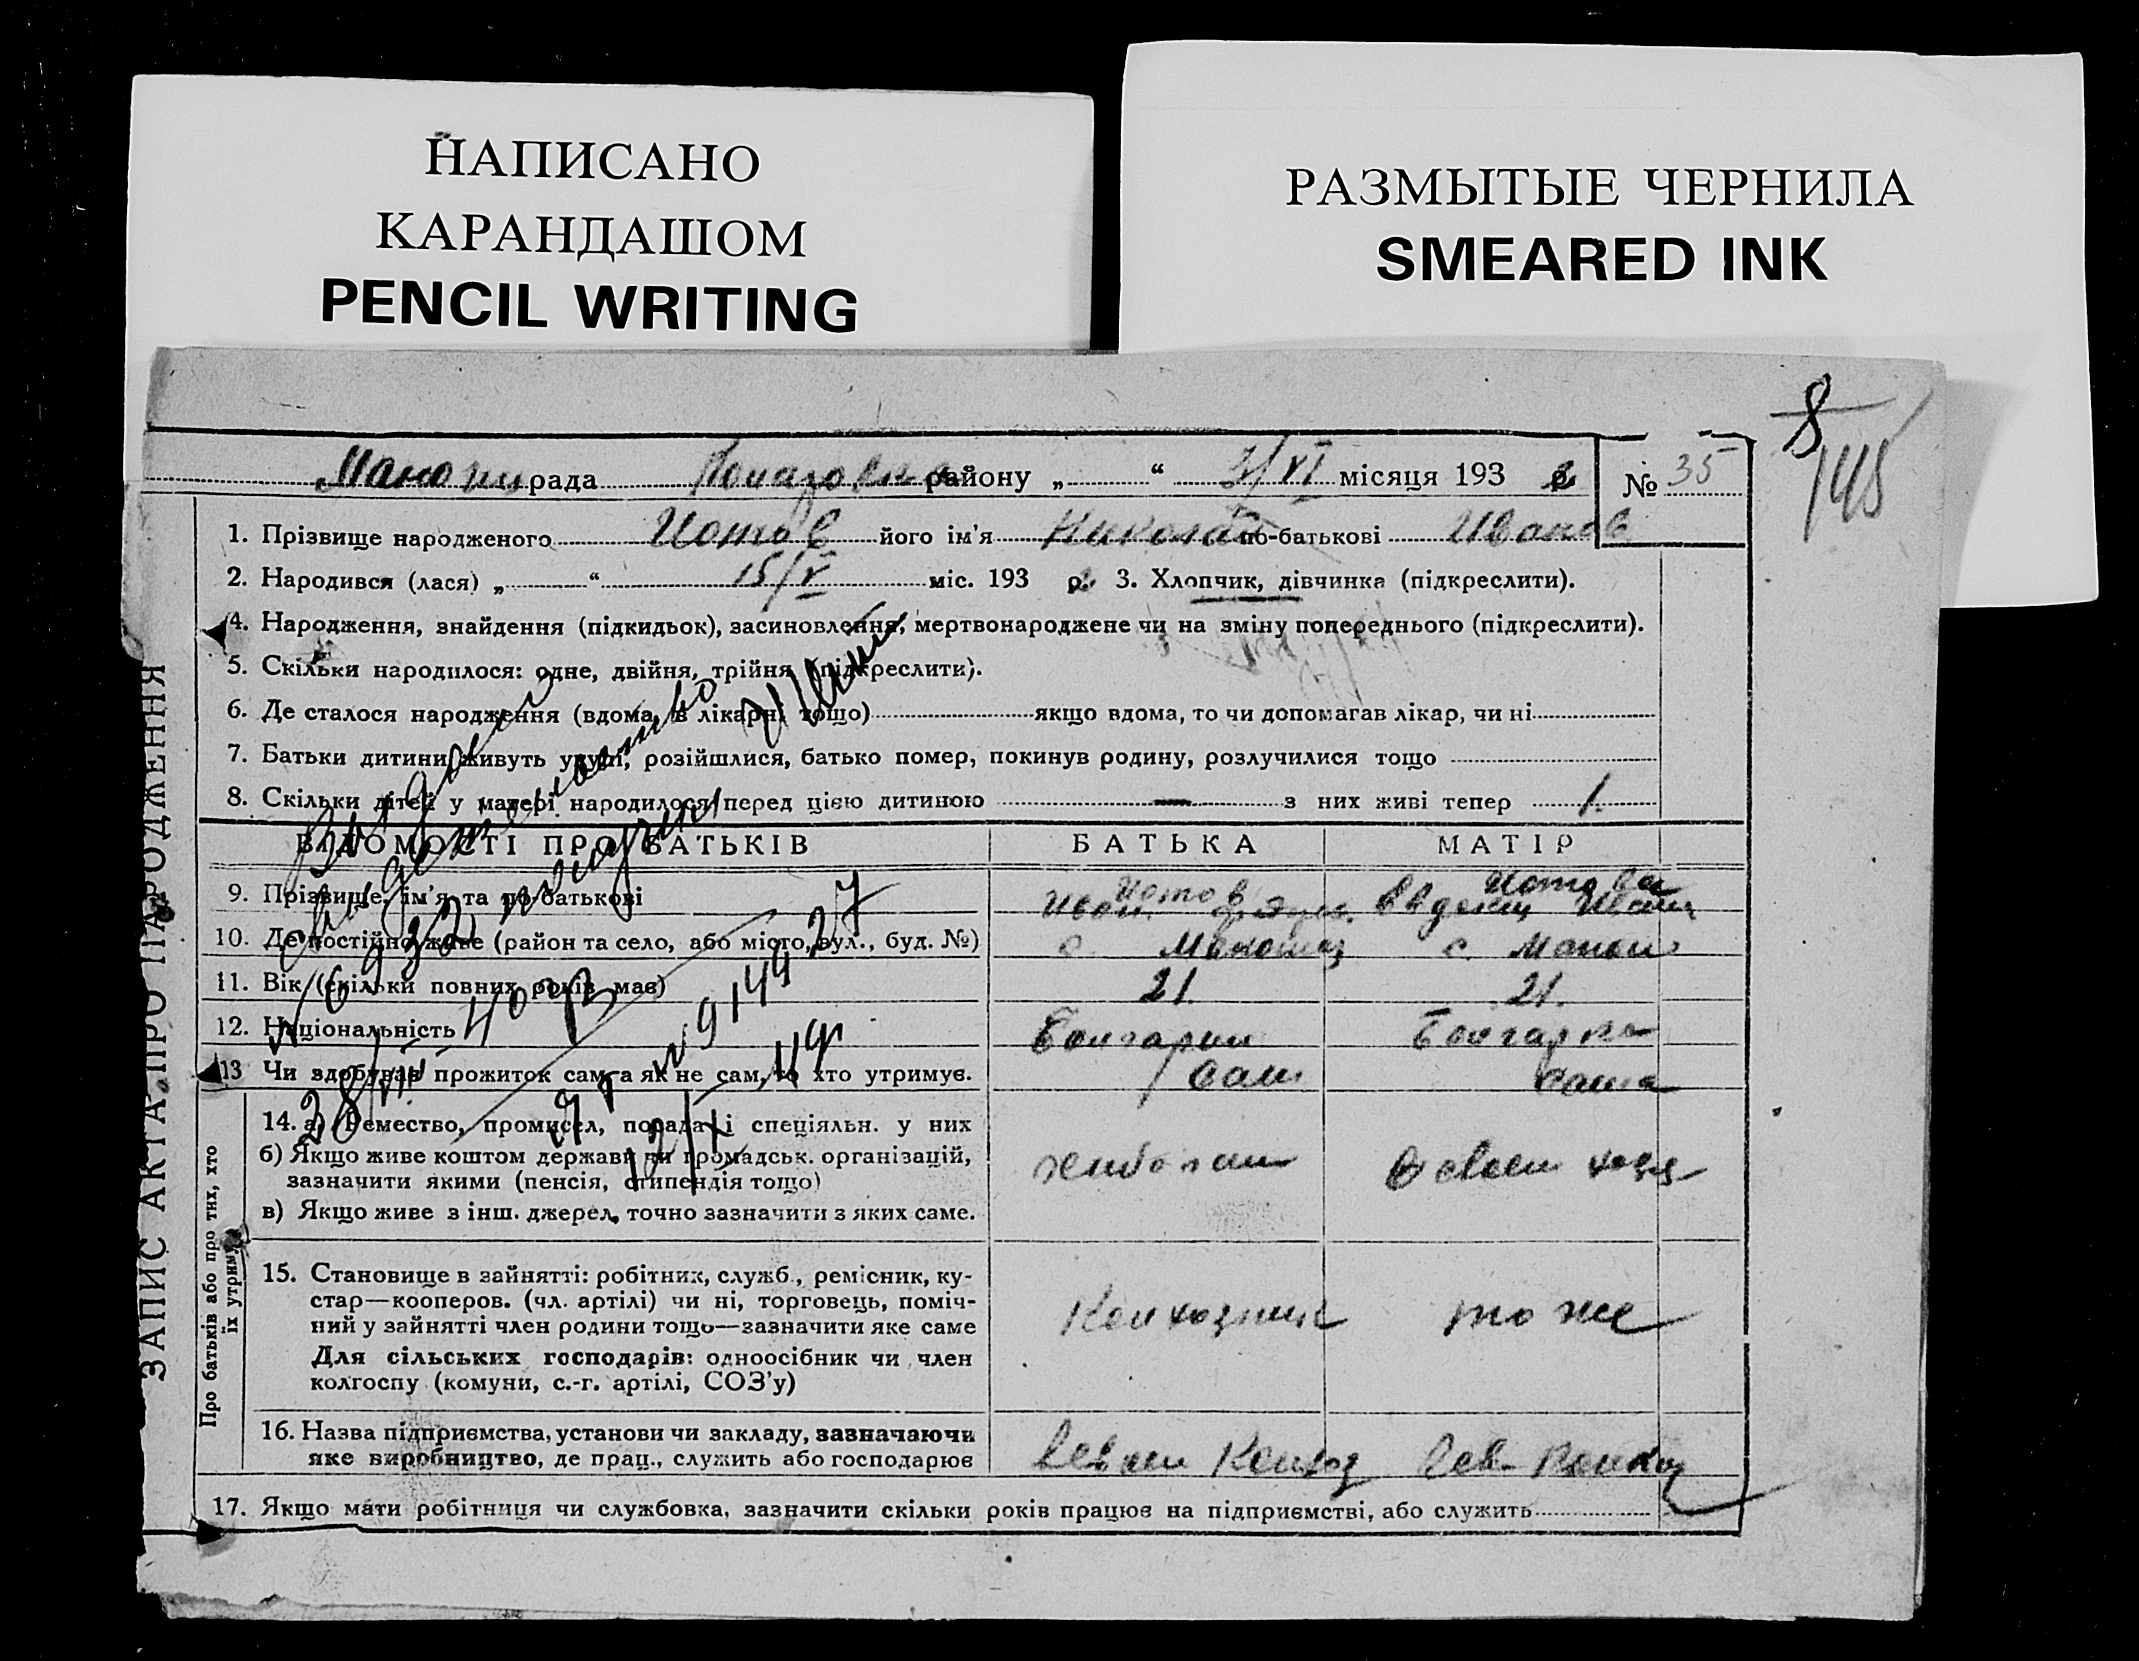 НАПИСАНО
КАРАНДАШОМ
PENCIL WRITING
РАЗМЫТЫЕ ЧЕРНИЛА
SMEARED INK
8
145
рада района району „ “ 3/VI місяця 193 2 № 35
1. Прізвище народженого Иотов його ім'я Николай по-батькові Иванов
2. Народився (лася) „ “ 15/V міс. 193 р. 3. Хлопчик, дівчинка (підкреслити).
4. Народження, знайдення (підкидьок), засиновлення, мертвонароджене чи на зміну попереднього (підкреслити).
5. Скільки народилося: одне, двійня, трійня (підкреслити).
6. Де сталося народження (вдома, в лікарні тощо) якщо вдома, то чи допомагав лікар, чи ні
7. Батьки дитини живуть укупі, розійшлися, батько помер, покинув родину, розлучилися тощо
8. Скільки дітей у матері народилося перед цією дитиною — з них живі тепер 1.
ВІДОМОСТІ ПРО БАТЬКІВ БАТЬКА МАТІР
9. Прізвище, ім'я та по-батькові Иотов Иван Иотова
10. Де постійно живе (район та село, або місто, вул., буд. №) с. с.
11. Вік (скільки повних років має) 21. 21.
12. Національність Болгарин Болгарка
13 Чи здобував прожиток сам, а як не сам, то хто утримує. Сам Сама
14. а) Ремество, промисел, порада і спеціяльн. у них
б) Якщо живе коштом держави чи громадськ. організацій,
зазначити якими (пенсія, стипендія тощо)
в) Якщо живе з інш. джерел, точно зазначити з яких саме.
15. Становище в зайнятті: робітник, служб., ремісник, ку-
стар—кооперов. (чл. артілі) чи ні, торговець, поміч-
ний у зайнятті член родини тощо—зазначити яке саме
Для сільських господарів: одноосібник чи член
колгоспу (комуни, с.-г. артілі, СОЗ'у)
Колхозник то же
16. Назва підприємства, установи чи закладу, зазначаючи
яке виробництво, де прац., служить або господарює
17. Якщо мати робітниця чи службовка, зазначити скільки років працює на підприємстві, або служить
ЗАПИС АКТА ПРО НАРОДЖЕННЯ
Про батьків або про тих, хто
їх утримує
Выдано
свидетельство